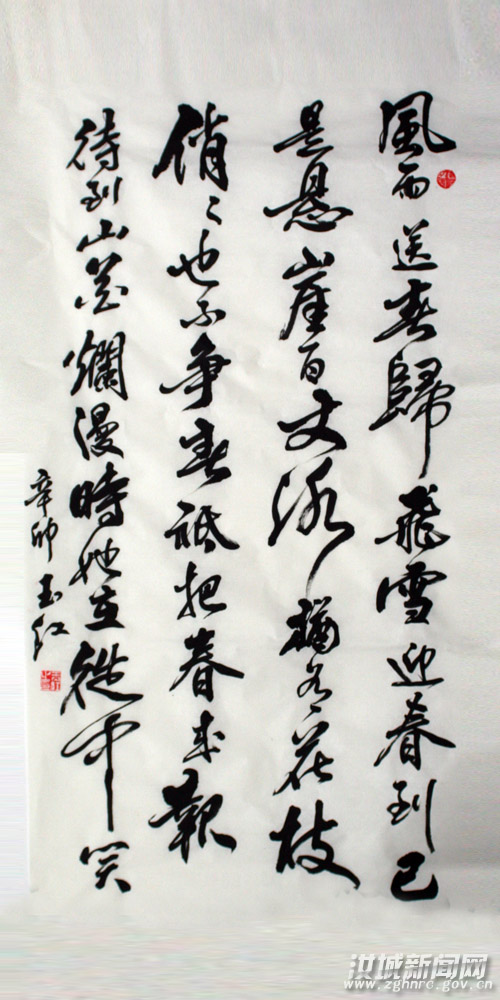 風雨送春歸飛雪迎春到已
是懸崖百丈冰猶有花枝
俏々也不爭春祇把春來報
待到山花爛漫時她在叢中笑
辛卯玉红
汝城新闻网
www.zghnrc.gov.cn